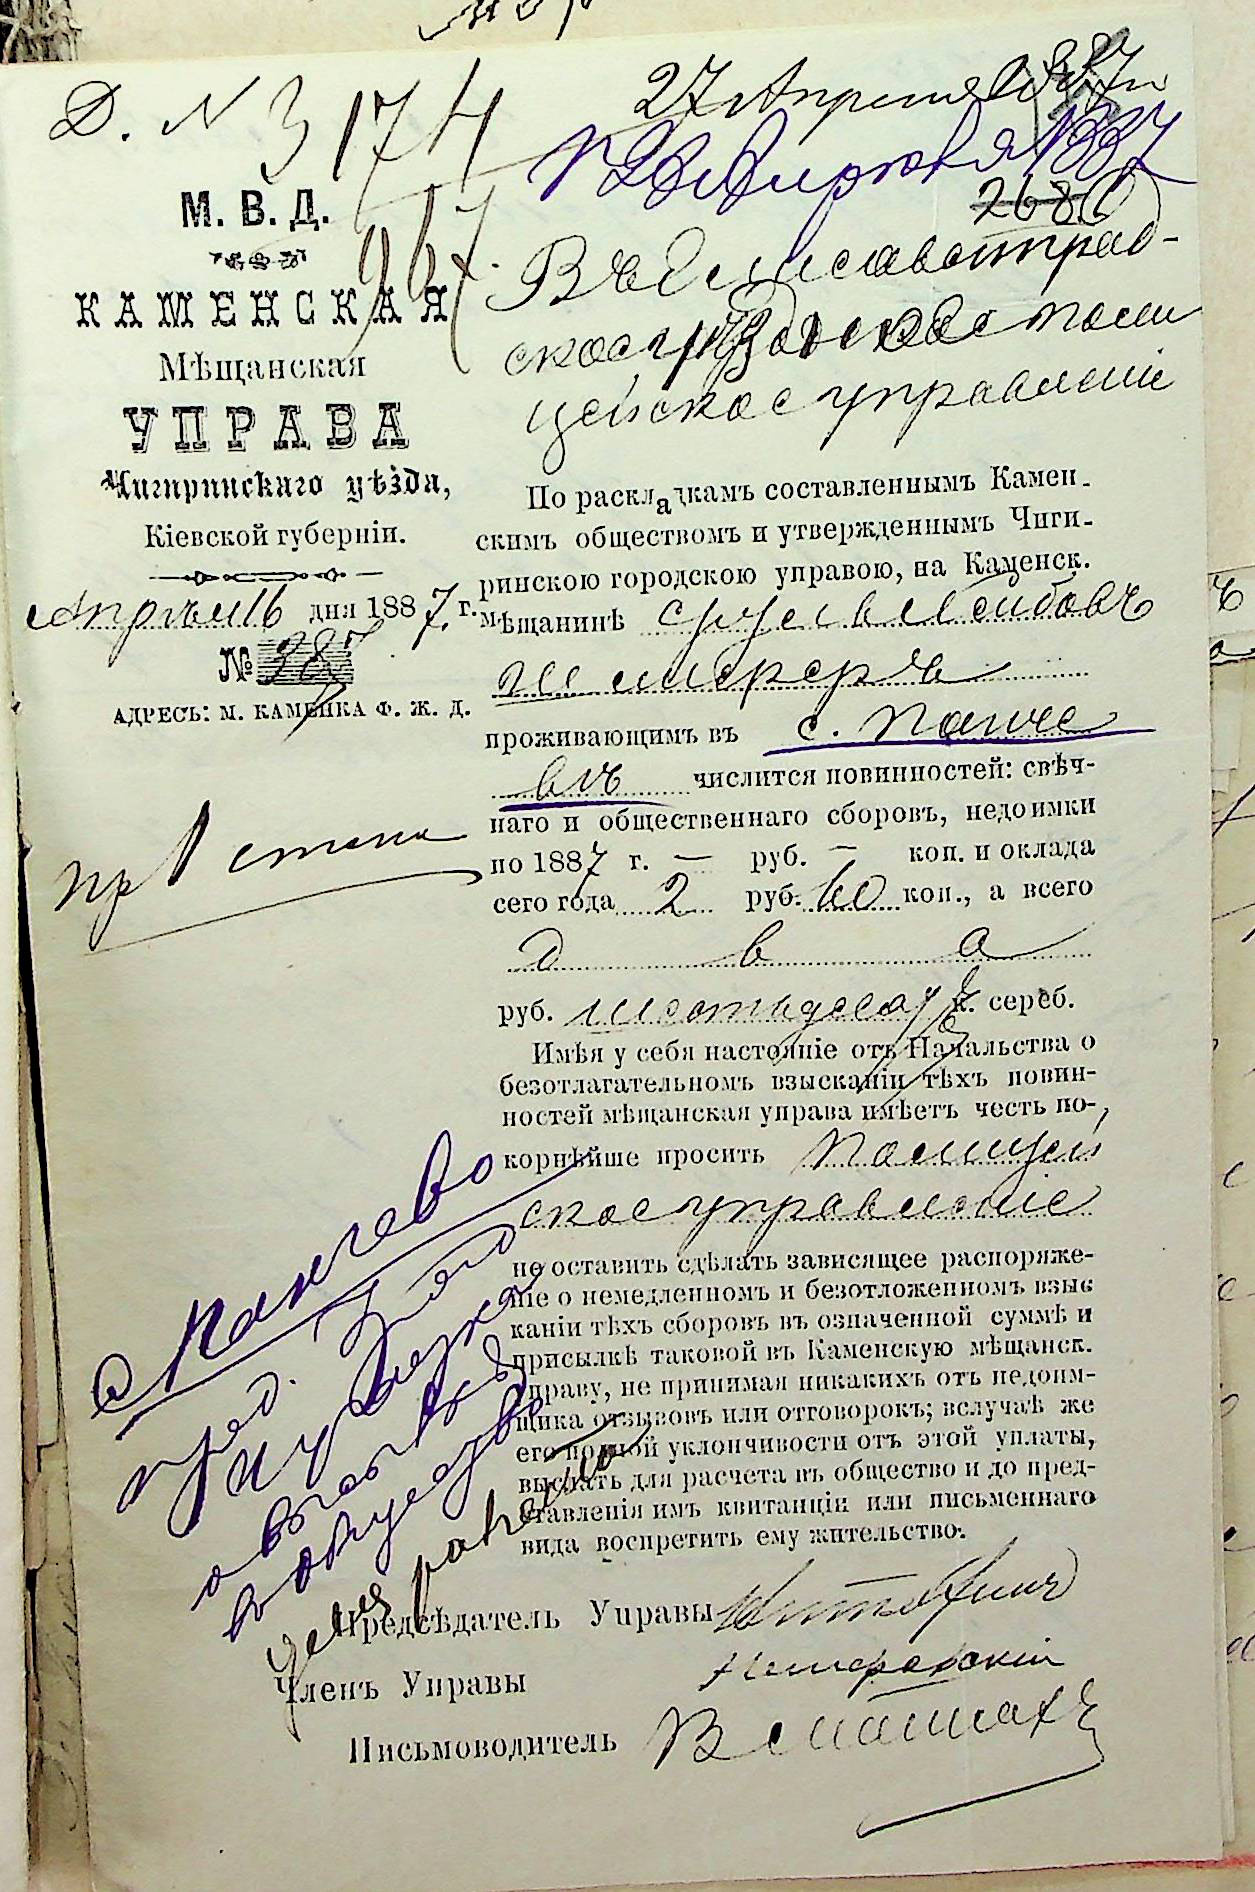 Д. № 3174
27 Апреля 1887 г.
967.
2680
М. В. Д.
КАМЕНСКАЯ
Мѣщанская
УПРАВА
Чигиринскаго уѣзда,
Кіевской губерніи.
Апрѣля 16 дня 1887 г.
№ 387
АДРЕСЪ: М. КАМЕНКА Ф. Ж. Д.
Въ Елисаветград-
ское уѣздное поли
цейское управленіе
По раскладкамъ составленнымъ Камен-
скимъ обществомъ и утвержденнымъ Чиги-
ринскою городскою управою, на Каменск.
мѣщанинѣ Сруль Лейбовъ
проживающимъ въ с. Панче
вѣ числится повинностей: свѣч-
наго и общественнаго сборовъ, недоимки
по 1887 г. — руб. — коп. и оклада
сего года 2 руб. 60 коп., а всего
два
руб. шестьдесят к. сереб.
Имѣя у себя настояніе отъ Начальства о
безотлагательномъ взысканіи тѣхъ повин-
ностей мѣщанская управа имѣетъ честь по-
корнѣйше просить Полицей
ское управленіе
не оставить сдѣлать зависящее распоряже-
ніе о немедленномъ и безотложенномъ взыс
каніи тѣхъ сборовъ въ означенной суммѣ и
присылкѣ таковой въ Каменскую мѣщанск.
управу, не принимая никакихъ отъ недоим-
щика отзывовъ или отговорокъ; вслучаѣ же
его полной уклончивости отъ этой уплаты,
выслать для расчета въ общество и до пред-
ставленія имъ квитанціи или письменнаго
вида воспретить ему жительство.
Предсѣдатель Управы
Членъ Управы
Письмоводитель
пр 1 стана
с Панчево